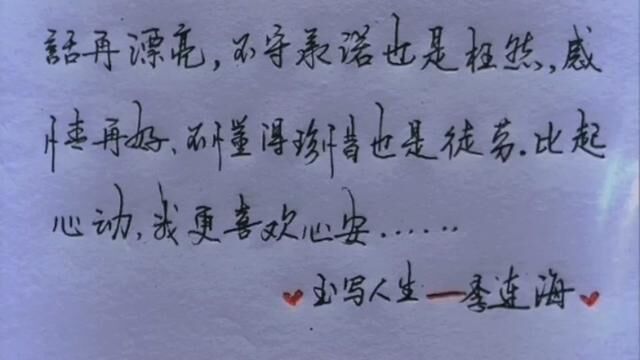 話再漂亮,不守承诺也是枉然,感
情再好、不懂得珍惜也是徒劳.比起
心动,我更喜欢心安……
❤玉写人生—季连海❤